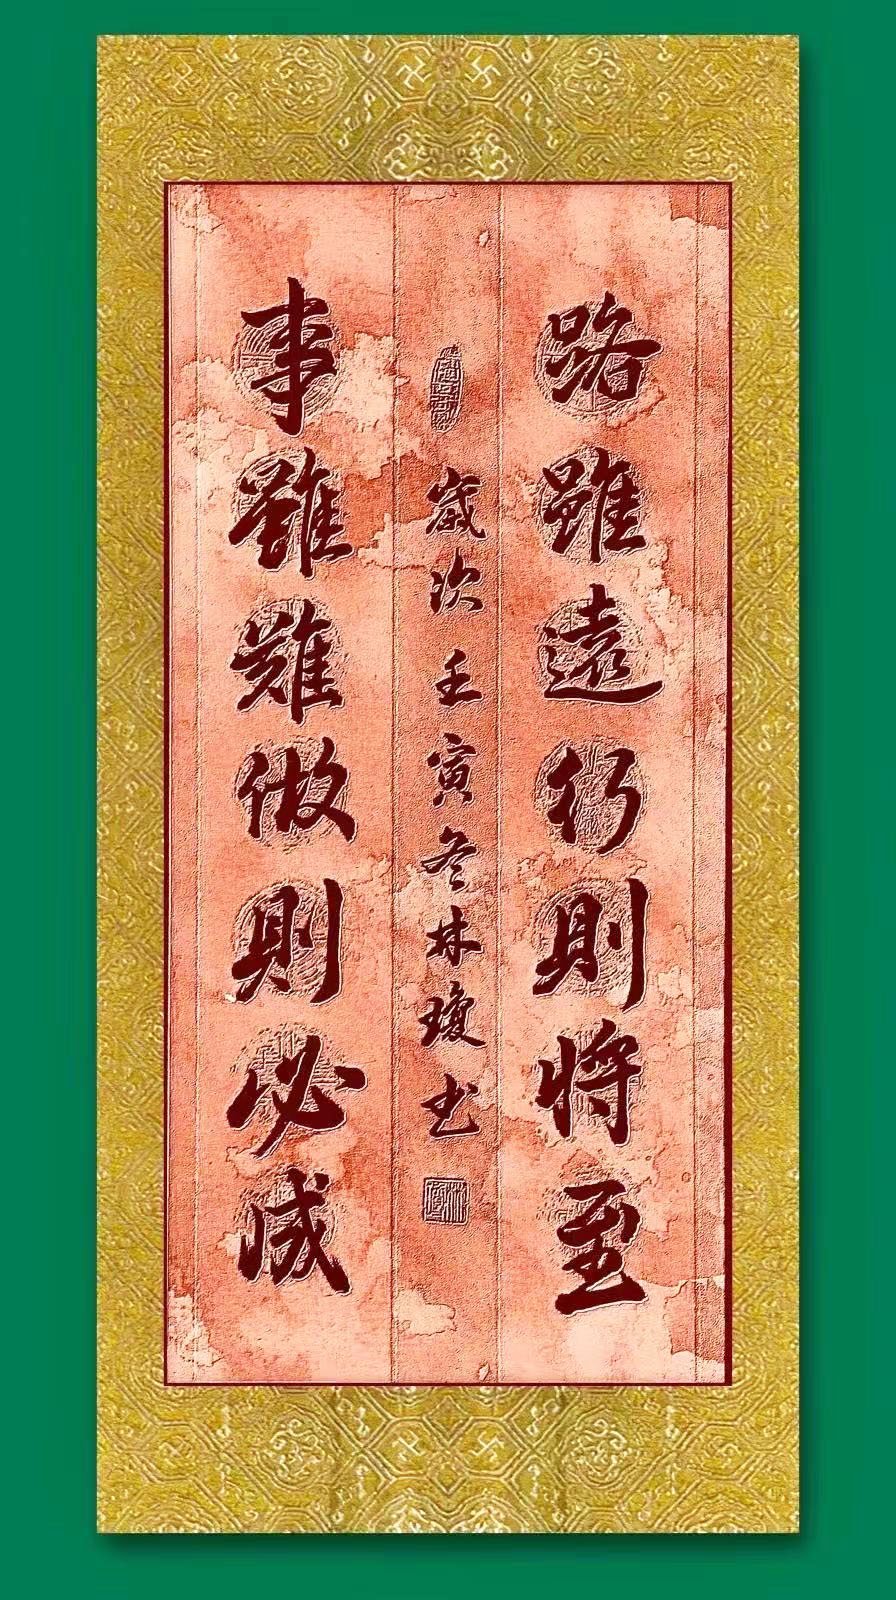 路雖遠行則將至
事雖難做則必成
歲次壬寅冬林瓊书